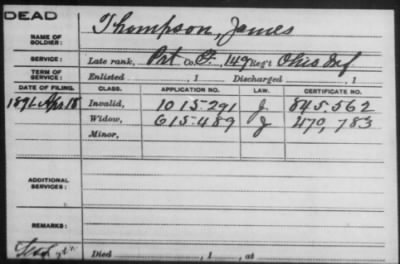 DEAD
NAME OF SOLDIER: Thompson, James
SERVICE: Late rank, Prt Co. , 149 Reg't Ohio Inf
TERM OF SERVICE: Enlisted , 1 Discharged , 1
DATE OF FILING. CLASS. APPLICATION NO. LAW. CERTIFICATE NO.
1891 Apr 18 Invalid, 1015.291 J 845.562
Widow, 615.489 J 479,783
Minor,
ADDITIONAL SERVICES:
REMARKS:
Died , 1 , at